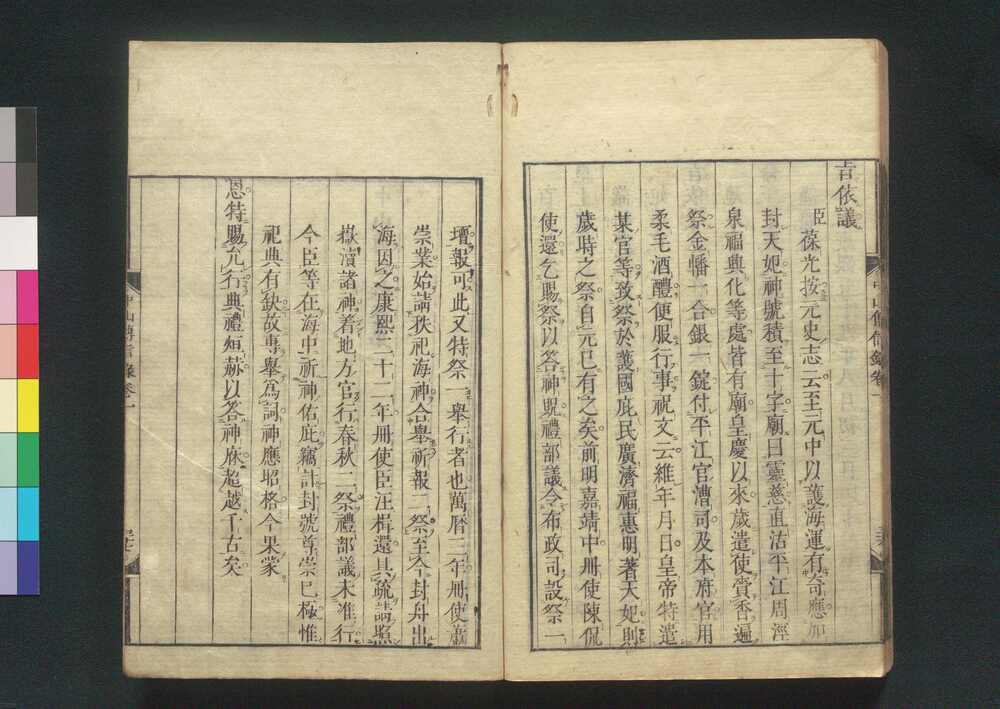 旨依議
臣葆光按元史志云至元中以護海運有奇應加
封天妃神號積至十字廟曰靈慈直沽平江周涇
泉福興化等處皆有廟皇慶以來歲遣使賫香遍
祭金幡一合銀一錠付平江官漕司及本府官用
柔毛酒醴便服行事祝文云維年月日皇帝特遣
某官等致祭於護國庇民廣濟福惠明著天妃則
歲時之祭自元已有之矣前明嘉靖中冊使陳侃
使還乞賜祭以答神貺禮部議令布政司設祭一
壇報可此又特祭一舉行者也萬曆三年冊使蕭
崇業始請秩祀海神合舉祈報二祭至今封舟出
海因之康熙二十二年冊使臣汪楫還具疏請照
嶽瀆諸神着地方官行春秋二祭禮部議未准行
今臣等在海中祈神佑庇竊計封號尊崇已極惟
祀典有缺故專舉為詞神應昭格今果蒙
恩特賜允行典禮烜赫以答神庥超越千古矣
中山傳信錄卷一
中山傳信錄卷一